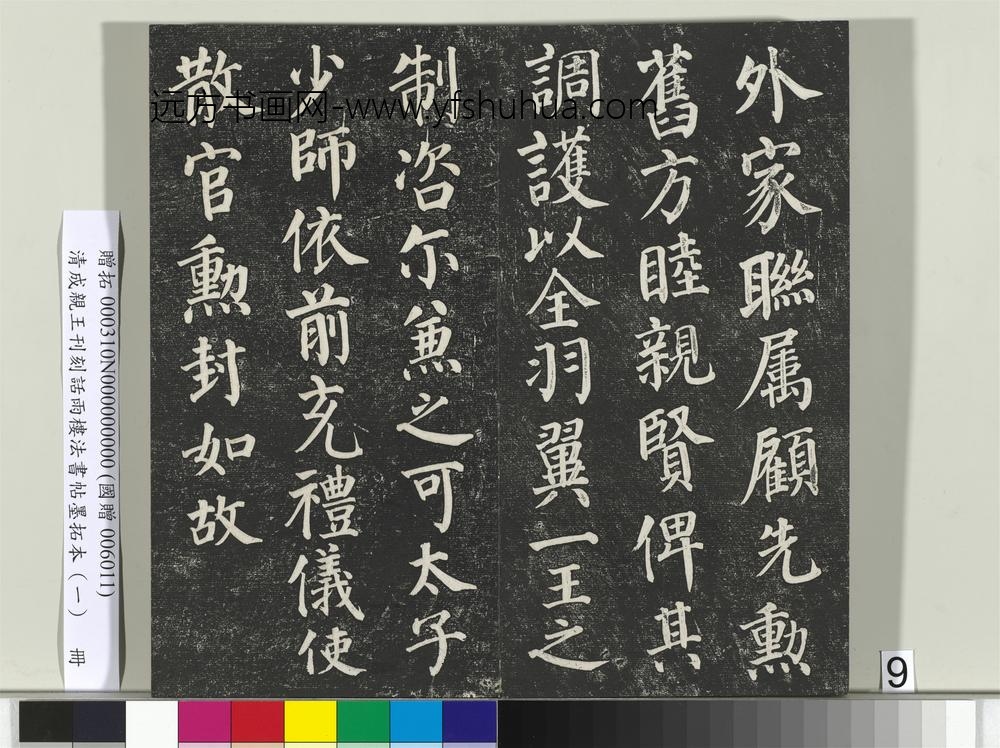 外家聯属顧先勲
舊方睦親賢俾其
調護以全羽翼一王之
制咨尓兼之可太子
少師依前充禮儀使
散官勲封如故
远方书画网-www.yfshuhua.com
贈拓 000310N000000000 (國贈 006011)
清成親王刊刻話雨樓法書帖墨拓本（一） 冊
9